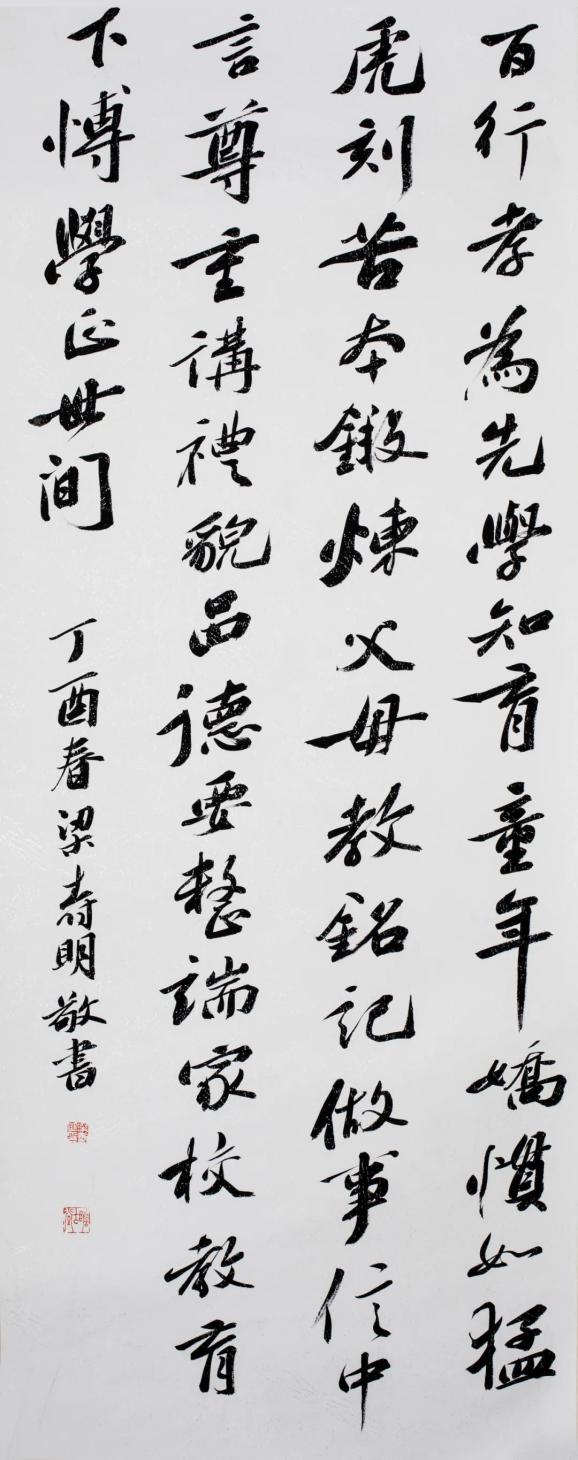 百行孝為先學知育童年嬌慣如猛
虎刻苦本鍛煉父母教銘記做事信中
言尊重講禮貌品德要整端家校教育
下博學正世間
丁酉春梁壽明敬書